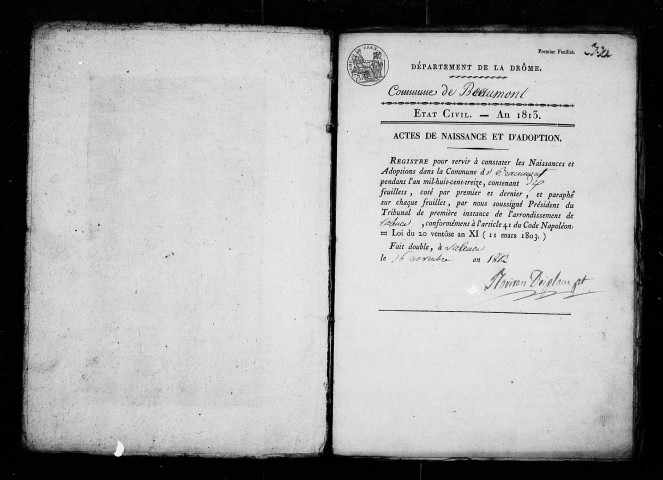 Premier Feuillet.
DÉPARTEMENT DE LA DRÔME.
Commune de Beaumont
ETAT CIVIL. — AN 1813.
ACTES DE NAISSANCE ET D'ADOPTION.
REGISTRE pour servir à constater les Naissances et
Adoptions dans la Commune de Beaumont
pendant l'an mil-huit-cent-treize, contenant
feuillets, coté par premier et dernier, et paraphé
sur chaque feuillet, par nous soussigné Président du
Tribunal de première instance de l'arrondissement de
Valence, conformément à l'article 41 du Code Napoléon.
= Loi du 20 ventôse an XI ( 11 mars 1803. )
Fait double, à Valence
le 16 novembre an 1812